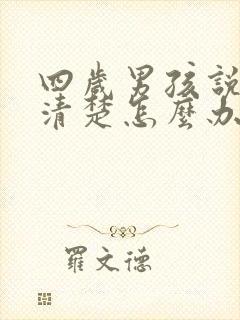 四歲男孩說
清楚怎麼办
羅文德